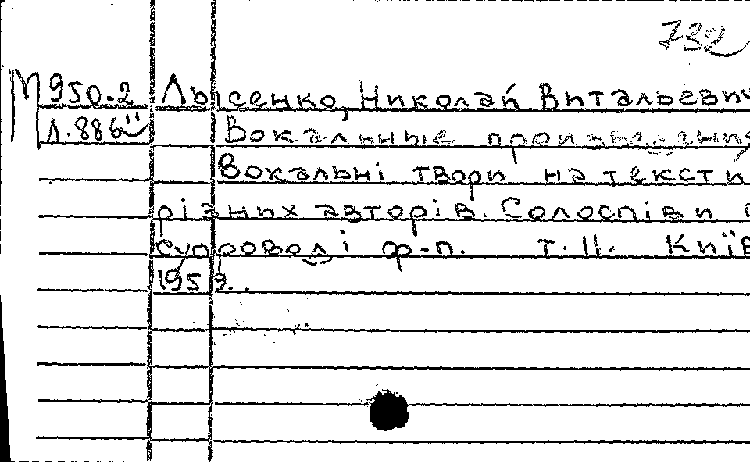 732
М 950.2 Лысенко, Николай Витальевич
Л.886" Вокальные произведения
Вокальні твори на тексти
різних авторів. Солоспіви
супроводі ф-п. т. II. Київ
1959.